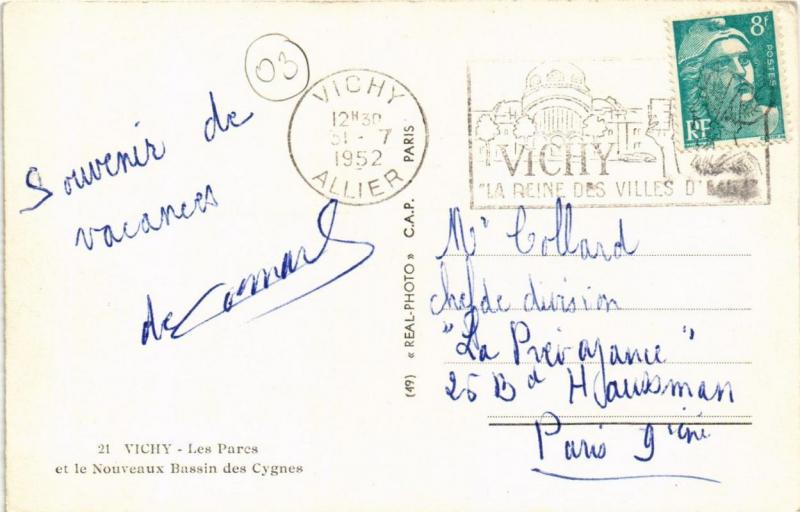 03
VICHY
12H30
31-7
1952
ALLIER
8F
POSTES
RF
VICHY
"LA REINE DES VILLES D'
Souvenir de
vacances
de
Mr Collard
chef de division
"La Prévoyance"
25 Bd Haussman
Paris 9ième
(49) « REAL-PHOTO » C.A.P. PARIS
21 VICHY - Les Parcs
et le Nouveaux Bassin des Cygnes